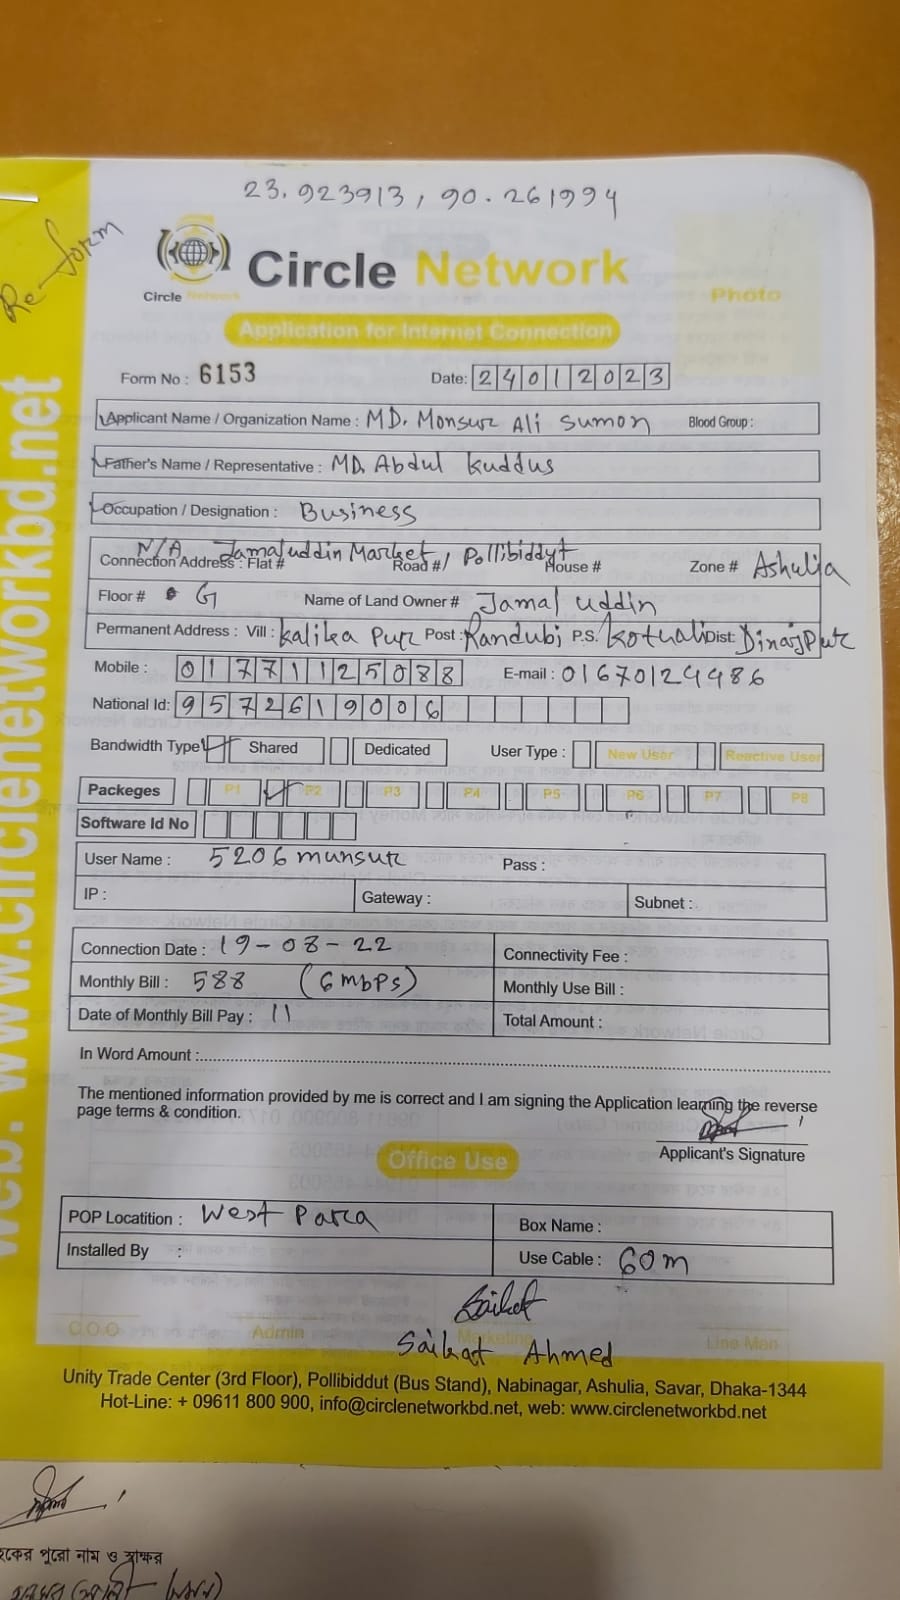 23.923913, 90.261994
Re-form
Circle Network
Circle Network
Photo
Application for Internet Connection
Form No : 6153 Date: 24012023
Applicant Name / Organization Name : MD. Monsur Ali Sumon Blood Group :
Father's Name / Representative : MD. Abdul Kuddus
Occupation / Designation : Business
N/A Jamaluddin Market, Pollibiddyt
Connection Address : Flat # Road # House # Zone # Ashulia
Floor # G Name of Land Owner # Jamal uddin
Permanent Address : Vill : Kalika Pur Post : Randubi P.S. Kotuali Dist: Dinajpur
Mobile : 01771125088 E-mail : 01670124486
National Id: 9572619006
Bandwidth Type Shared Dedicated User Type : New User Reactive User
Packeges P1 P2 P3 P4 P5 P6 P7 P8
Software Id No
User Name : 5206munsur Pass :
IP : Gateway : Subnet :
Connection Date : 19-08-22 Connectivity Fee :
Monthly Bill : 588 (6 mbps) Monthly Use Bill :
Date of Monthly Bill Pay : 11 Total Amount :
In Word Amount :
The mentioned information provided by me is correct and I am signing the Application learning the reverse
page terms & condition.
Applicant's Signature
Office Use
POP Locatition : West Para Box Name :
Installed By : Use Cable : 60m
Saikat
C.O.O Admin Marketing Line Man
Saikat Ahmed
Unity Trade Center (3rd Floor), Pollibiddut (Bus Stand), Nabinagar, Ashulia, Savar, Dhaka-1344
Hot-Line: + 09611 800 900, info@circlenetworkbd.net, web: www.circlenetworkbd.net
web: www.circlenetworkbd.net
পুরো নাম ও স্বাক্ষর